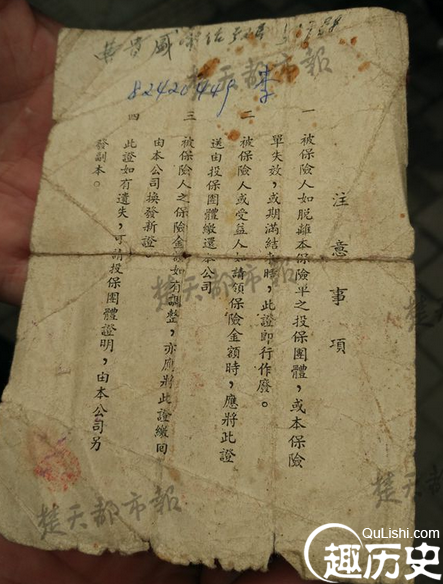 82420449 李
注意事項
一 被保險人如脫離本保險單之投保團體，或本保險
單失效，或期滿結 時，此證即行作廢。
二 被保險人或受益人 請領保險金額時，應將此證
送由投保團體繳還本公司
三 被保險人之保險金額如有調整，亦應將此證繳回
由本公司換發新證
四 此證如有遺失，可請投保團體證明，由本公司另
發副本。
楚天都市報
楚天都市報
楚天都市報
楚天
楚天
QuLishi.com
趣历史